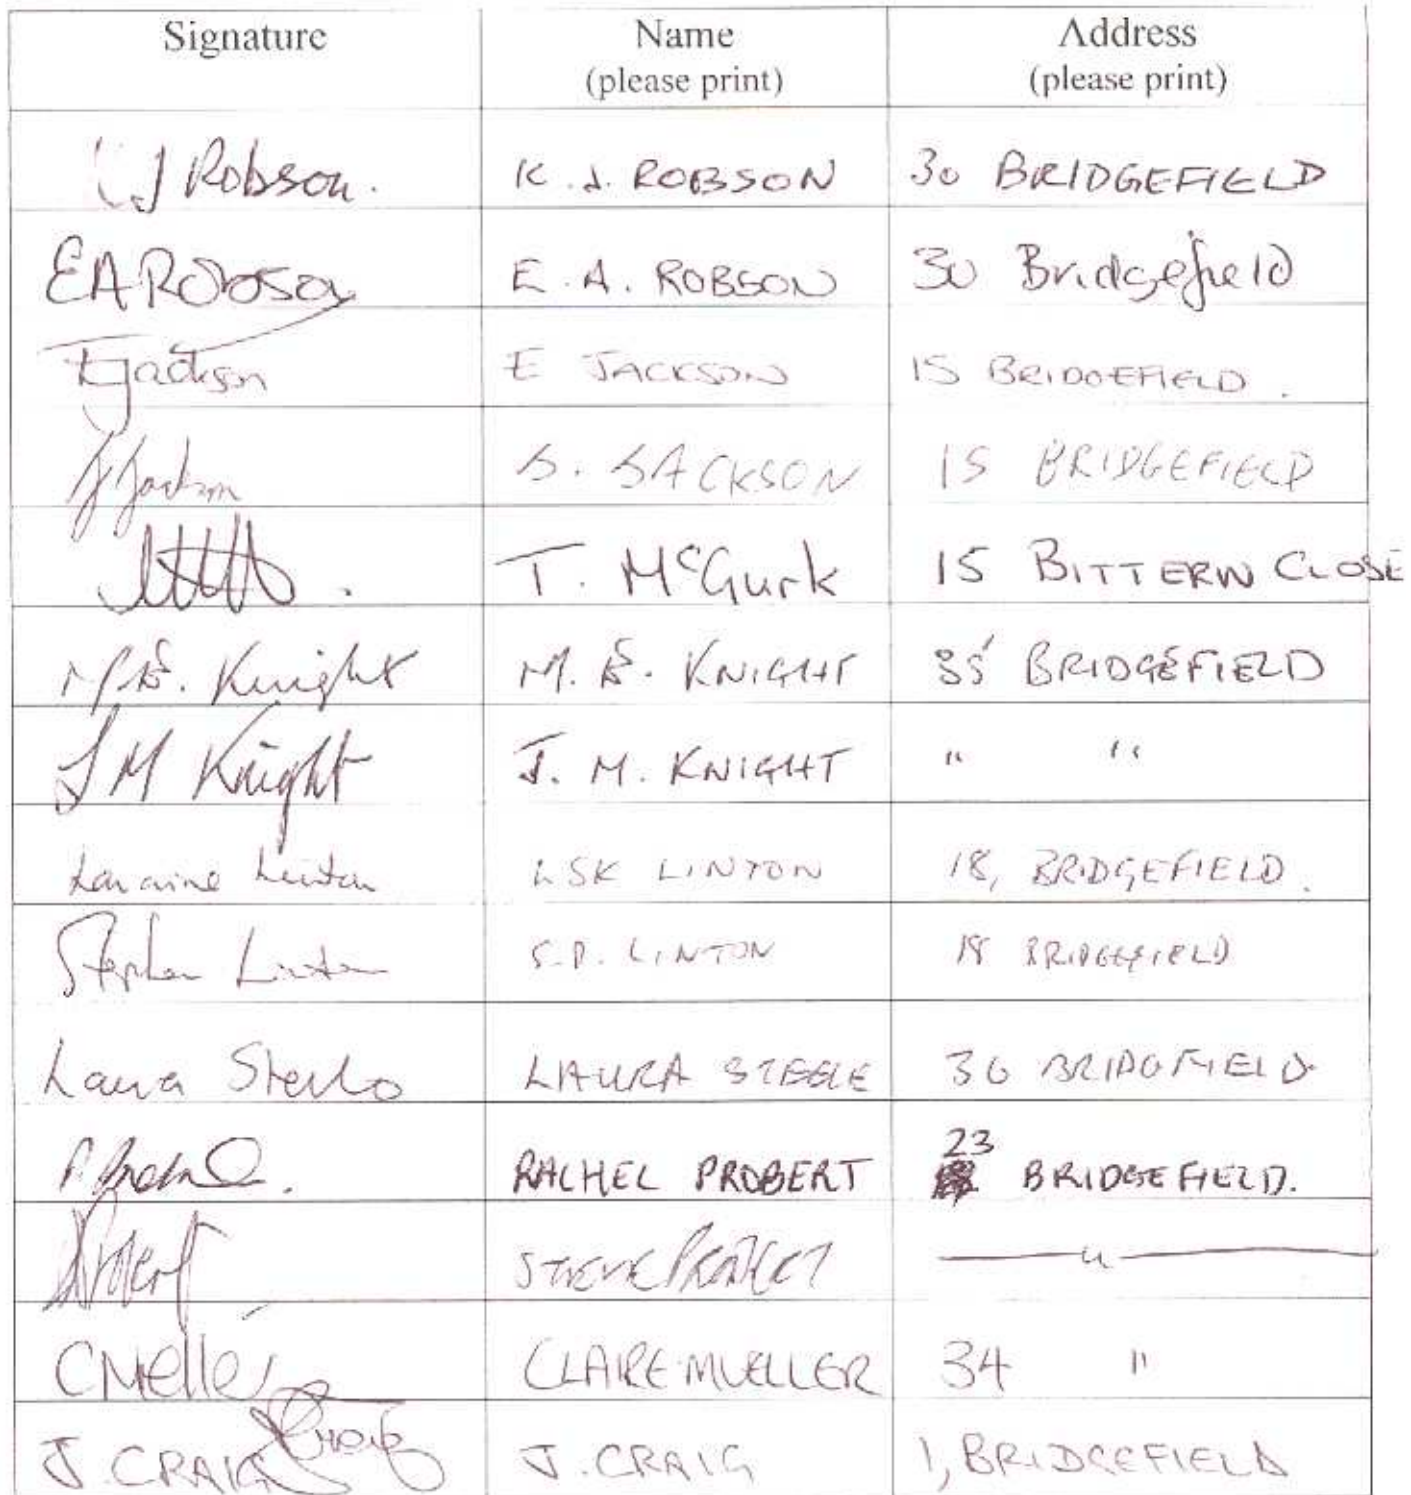 Signature Name Address
(please print) (please print)
J Robson. K. J. ROBSON 30 BRIDGEFIELD
EA Robson E. A. ROBSON 30 Bridgefield
E Jackson E JACKSON 15 BRIDGEFIELD.
J Jackson J. JACKSON 15 BRIDGEFIELD
T. McGurk 15 BITTERN CLOSE
M.E. Knight M. E. KNIGHT 35 BRIDGEFIELD
J M Knight J. M. KNIGHT " "
Lorraine Linton LSK LINTON 18, BRIDGEFIELD.
Stephen Linton S.P. LINTON 18 BRIDGEFIELD
Laura Steele LAURA STEELE 36 BRIDGFIELD.
RACHEL PROBERT 23 BRIDGEFIELD.
STEVE PROBERT "
CMueller CLAIRE MUELLER 34 "
J. CRAIG J. CRAIG 1, BRIDGEFIELD